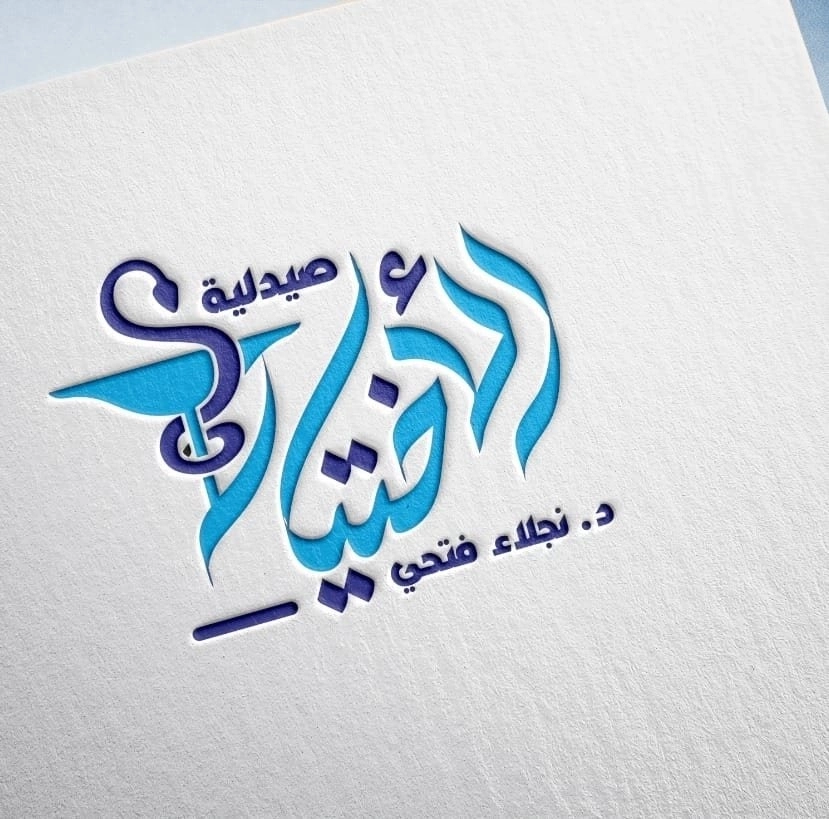 صيدلية
الأختيار
د. نجلاء فتحي